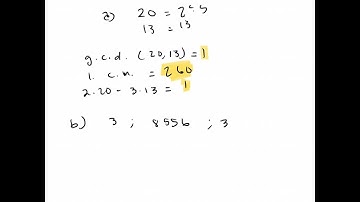 a) 20 = 2².5
13 = 13
g.c.d. (20,13) = 1
l. c.m. = 260
2.20 - 3.13 = 1
b) 3 ; 8556 ; 3